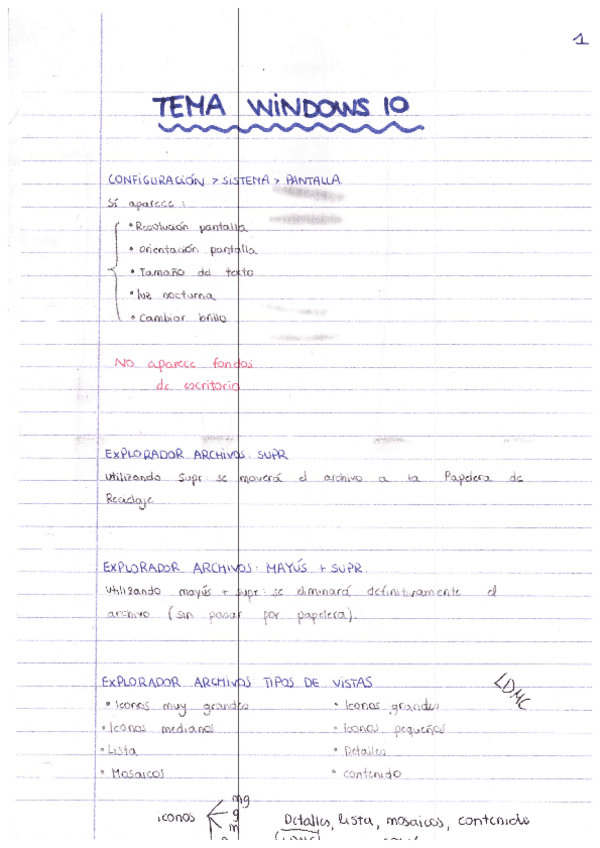 1
TEMA WINDOWS 10
CONFIGURACIÓN > SISTEMA > PANTALLA
Sí aparece:
• Resolución pantalla
• Orientación pantalla
• Tamaño del texto
• luz nocturna
• Cambiar brillo
NO aparece fondos
de escritorio
EXPLORADOR ARCHIVOS: SUPR
Utilizando Supr se moverá el archivo a la Papelera de
Reciclaje
EXPLORADOR ARCHIVOS: MAYÚS + SUPR
Utilizando mayús + supr: se eliminará definitivamente el
archivo (sin pasar por papelera).
EXPLORADOR ARCHIVOS: TIPOS DE VISTAS
LDMC
• Iconos muy grandes • Iconos grandes
• Iconos medianos • Iconos pequeños
• Lista • Detalles
• Mosaicos • Contenido
mg
iconos g Detalles, lista, mosaicos, contenido
m